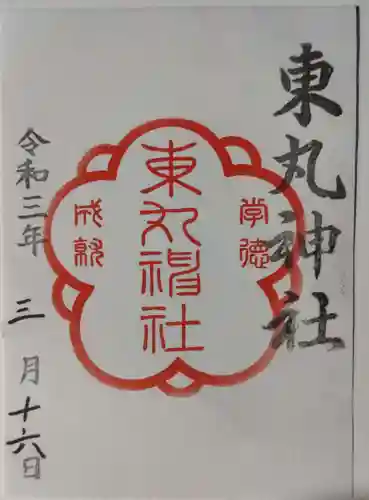 東丸神社
学徳
東丸神社
成就
令和三年 三月十六日